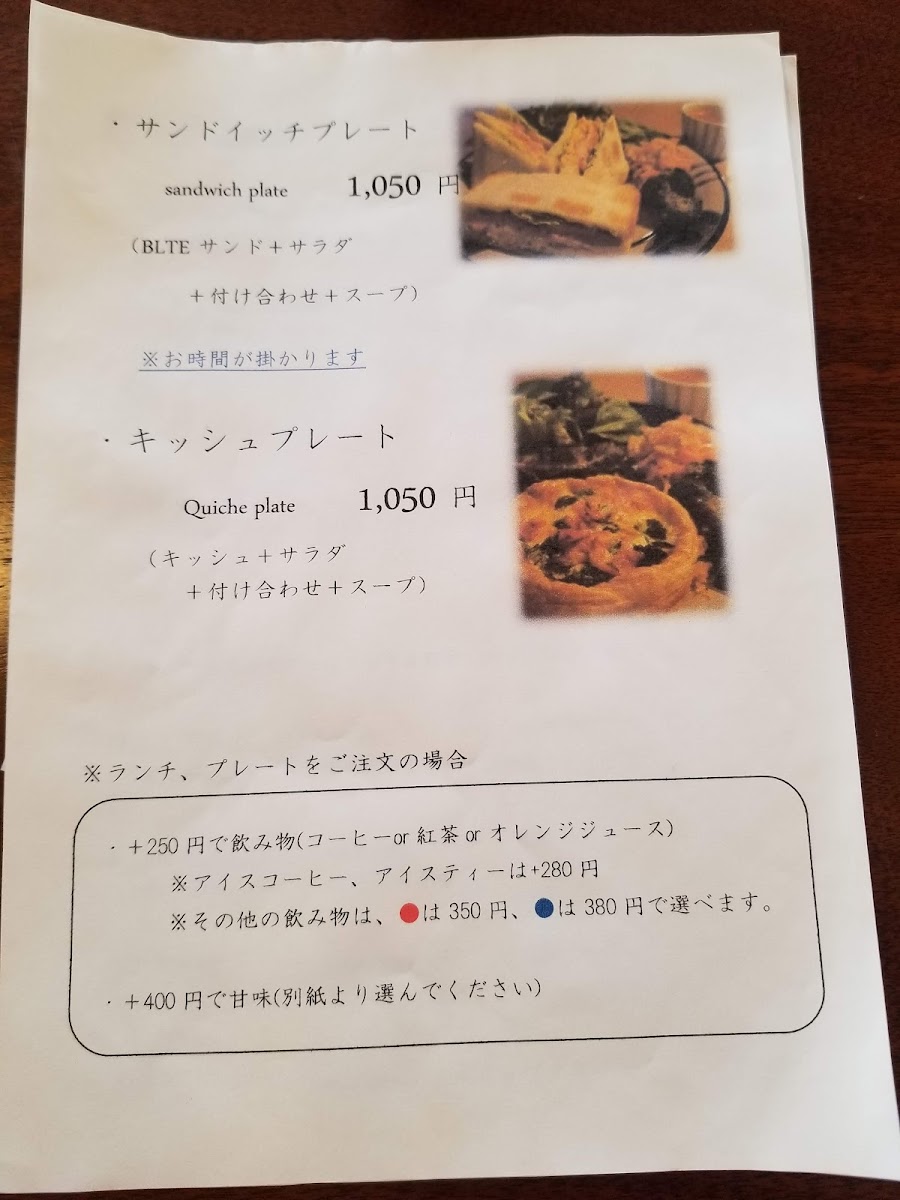 ・サンドイッチプレート
sandwich plate 1,050 円
（BLTE サンド＋サラダ
＋付け合わせ＋スープ）
※お時間が掛かります
・キッシュプレート
Quiche plate 1,050 円
（キッシュ＋サラダ
＋付け合わせ＋スープ）
※ランチ、プレートをご注文の場合
・＋250 円で飲み物(コーヒーor 紅茶 or オレンジジュース)
※アイスコーヒー、アイスティーは+280 円
※その他の飲み物は、●は 350 円、●は 380 円で選べます。
・＋400 円で甘味(別紙より選んでください)